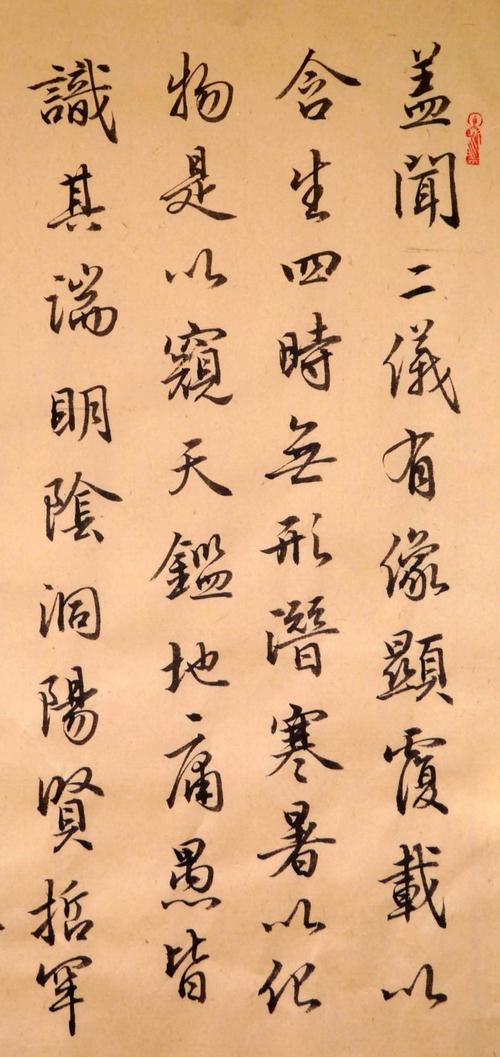 盖聞二儀有像顯覆載以
含生四時無形潛寒暑以化
物是以窺天鑑地庸愚皆
識其端明陰洞陽賢哲罕